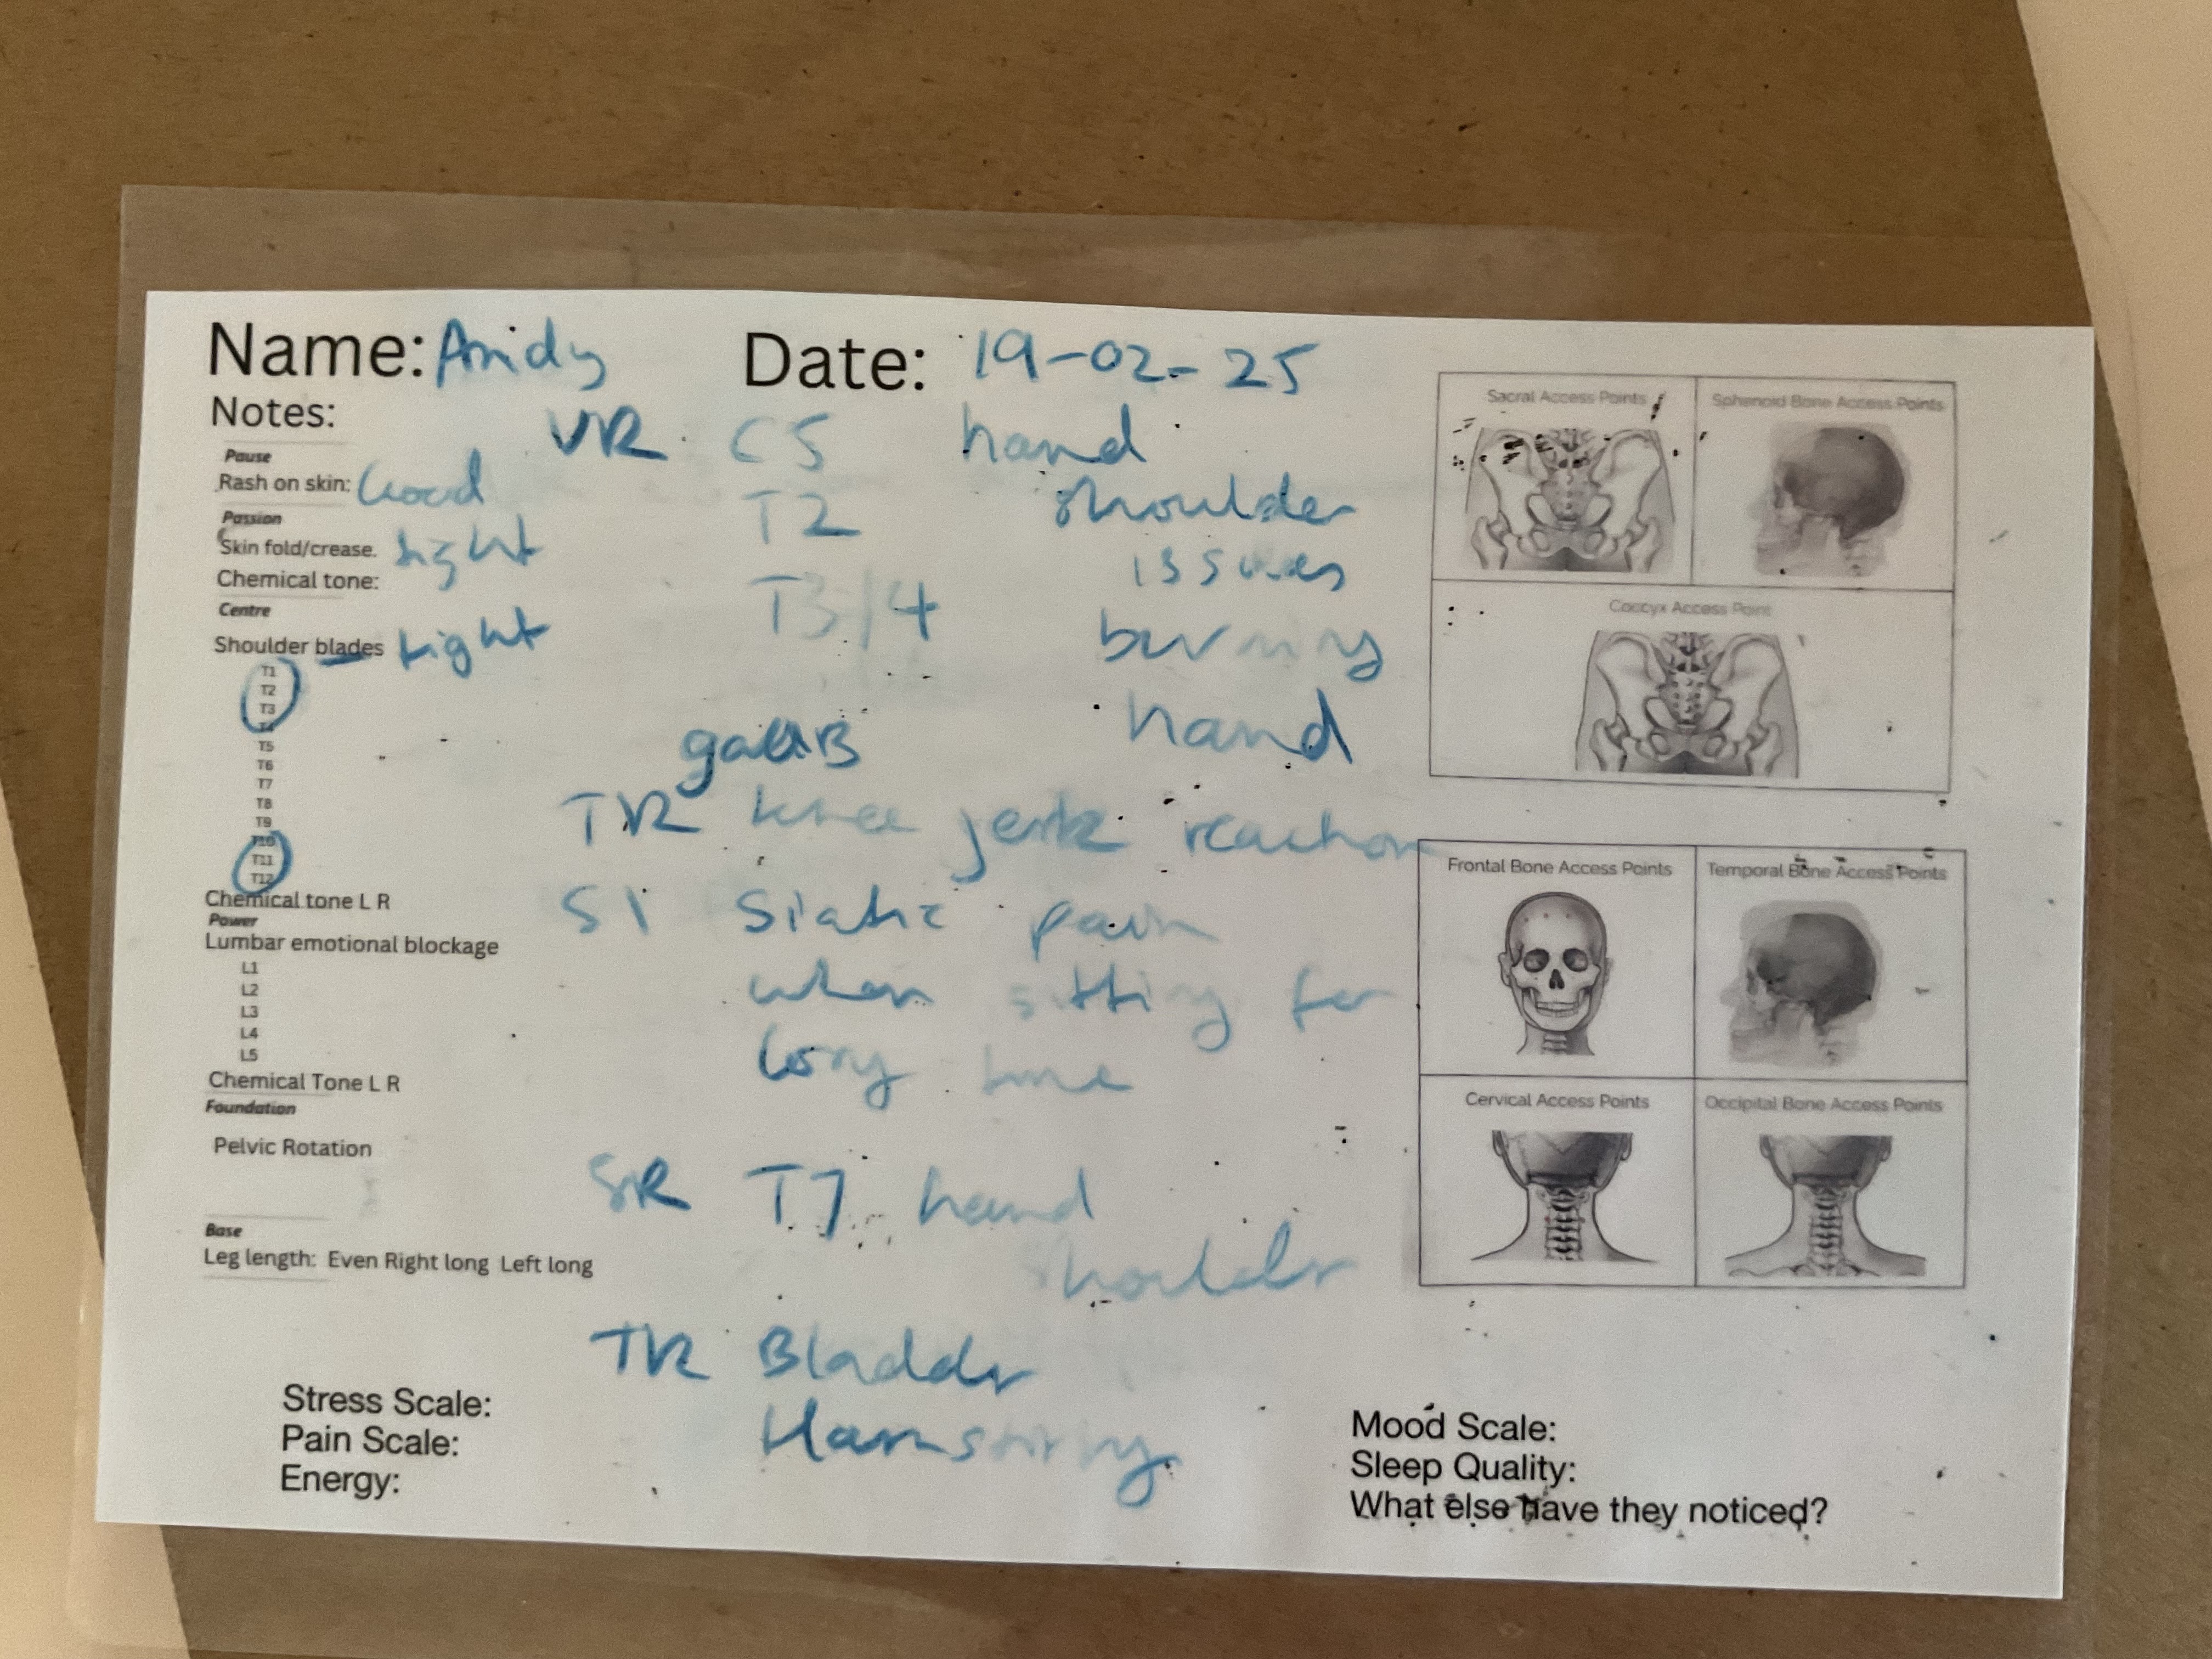 Name: Andy Date: 19-02-25
Notes:
VR C5 hand
Pause
Rash on skin: Good
T2 shoulder
Passion
Skin fold/crease. tight
issues
Chemical tone:
T3/4
Centre
Shoulder blades - tight
burning
T1
T2
T3
T4
T5
T6
T7
T8
T9
T10
T11
T12
gallB hand
TR knee jerk reaction
Chemical tone L R
Power
Lumbar emotional blockage
L1
L2
L3
L4
L5
S1 Siatic pain
when sitting for
long time
Chemical Tone L R
Foundation
Pelvic Rotation
SR T7 hand
shoulder
Base
Leg length: Even Right long Left long
TR Bladder
Hamstring
Stress Scale:
Pain Scale:
Energy:
Sacral Access Points
Sphenoid Bone Access Points
Coccyx Access Point
Frontal Bone Access Points
Temporal Bone Access Points
Cervical Access Points
Occipital Bone Access Points
Mood Scale:
Sleep Quality:
What else have they noticed?